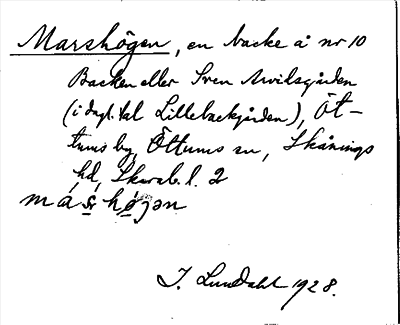 Marshögen, en backe å nr 10
Backen eller Sven Arvidsgården
(i dagl. tal Lillebackgården), Öt-
tums by, Öttums sn, Skånings
hd, Skarab. l. 2
máṣ̌r høʝən
I. Lundahl 1928.